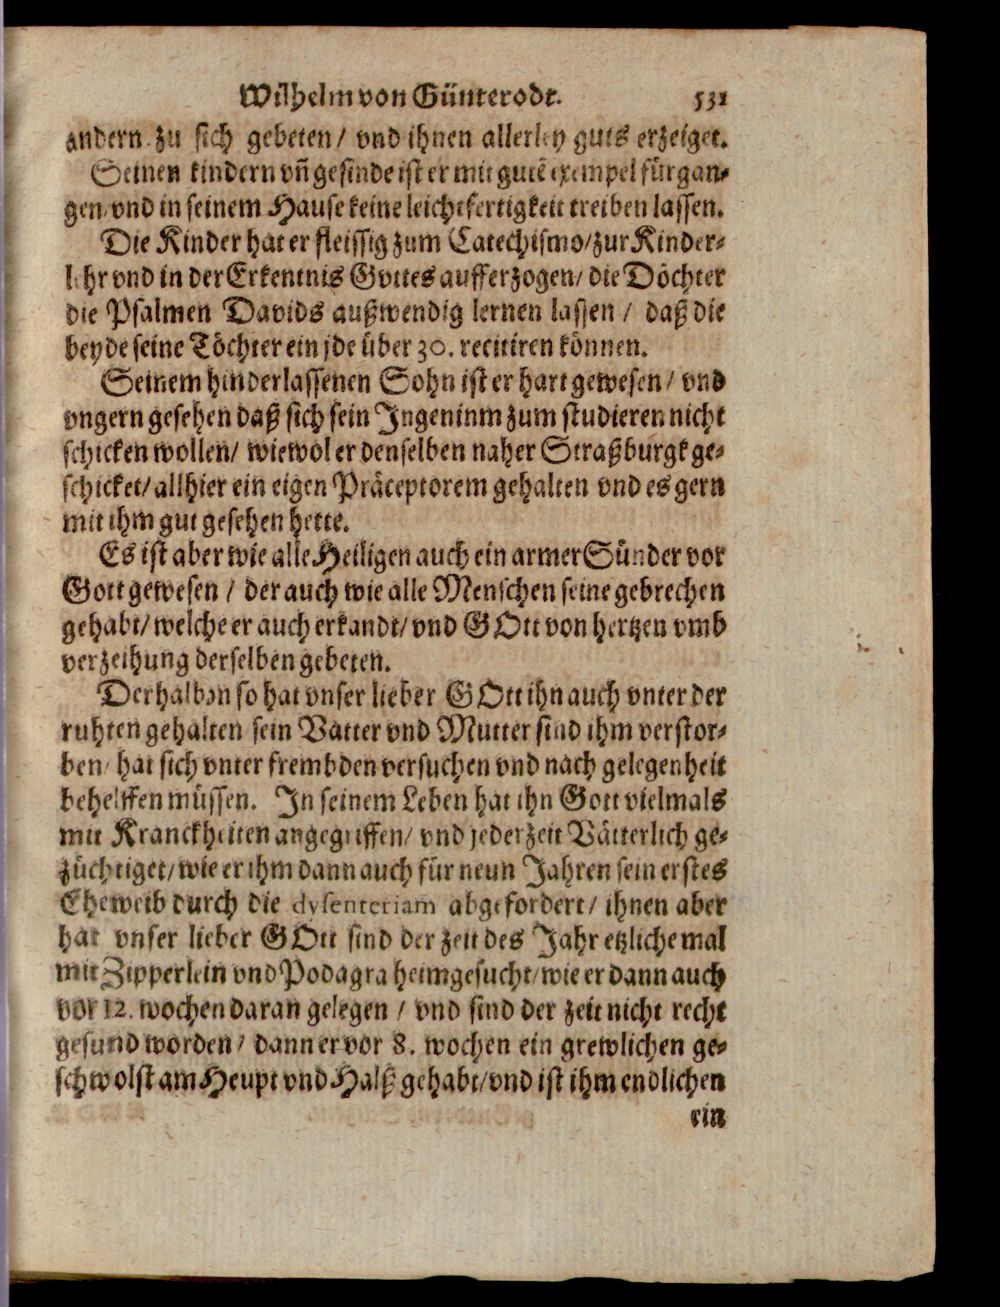 Wilhelm von Günterodt. 531
andern zu sich gebeten/ vnd ihnen allerley guts erzeiget.
Seinen kindern vñ gesinde ist er mit gutē exempel fürgan-
gen/ vnd in seinem Hause keine leichtfertigkeit treiben lassen.
Die Kinder hat er fleissig zum Catechismo/ zur Kinder-
lehr vnd in der Erkentnis Gottes aufferzogen/ die Döchter
die Psalmen Davids außwendig lernen lassen / daß die
beyde seine Töchter ein jde über 30. recitiren können.
Seinem hinderlassenen Sohn ist er hart gewesen/ vnd
vngern gesehen daß sich sein Ingeninm zum studieren nicht
schicken wollen/ wiewol er denselben naher Straßburgk ge-
schicket/ allhier ein eigen Präceptorem gehalten vnd es gern
mit ihm gut gesehen hette.
Es ist aber wie alle Heiligen auch ein armer Sünder vor
Gott gewesen / der auch wie alle Menschen seine gebrechen
gehabt/ welche er auch erkandt/ vnd GOtt von hertzen vmb
verzeihung derselben gebeten.
Derhalben so hat vnser lieber GOtt ihn auch vnter der
ruhten gehalten sein Vatter vnd Mutter sind ihm verstor-
ben/ hat sich vnter frembden versuchen vnd nach gelegenheit
behelffen müssen. In seinem Leben hat ihn Gott vielmals
mit Kranckheiten angegriffen/ vnd jederzeit Vätterlich ge-
züchtiget/ wie er ihm dann auch für neun Jahren sein erstes
Eheweib durch die dysenteriam abgefordert/ ihnen aber
hat vnser lieber GOtt sind der zeit des Jahr etzliche mal
mit Zipperlein vnd Podagra heimgesucht/ wie er dann auch
vor 12. wochen daran gelegen / vnd sind der zeit nicht recht
gesund worden/ dann er vor 8. wochen ein grewlichen ge-
schwolst am Heupt vnd Halß gehabt/ vnd ist ihm endlichen
ein